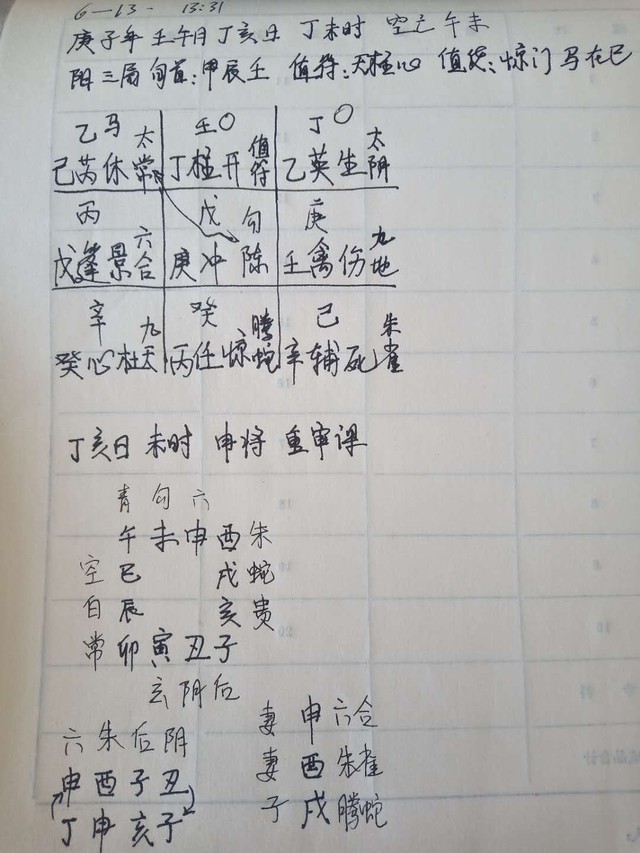 6-13- 13:31
庚子年 壬午月 丁亥日 丁未时 空 午未
阳三局 旬首:甲辰壬 值符:天柱心 值使:惊门 马在巳
乙马 太常 壬〇 值符 丁〇 太阴
己芮休 丁柱开 乙英生
丙 六合 戊 勾陈 庚 九地
戊蓬景 庚冲 壬禽伤
辛 九天 癸 腾蛇 己 朱雀
癸心杜 丙任惊 辛辅死
丁亥日 未时 申将 重审课
青 勾 六
午 未 申 酉 朱
空 巳 戌 蛇
白 辰 亥 贵
常 卯 寅 丑 子
玄 阴 后
六 朱 后 阴
申 酉 子 丑
丁 申 亥 子
妻 申 六合
妻 酉 朱雀
子 戌 腾蛇